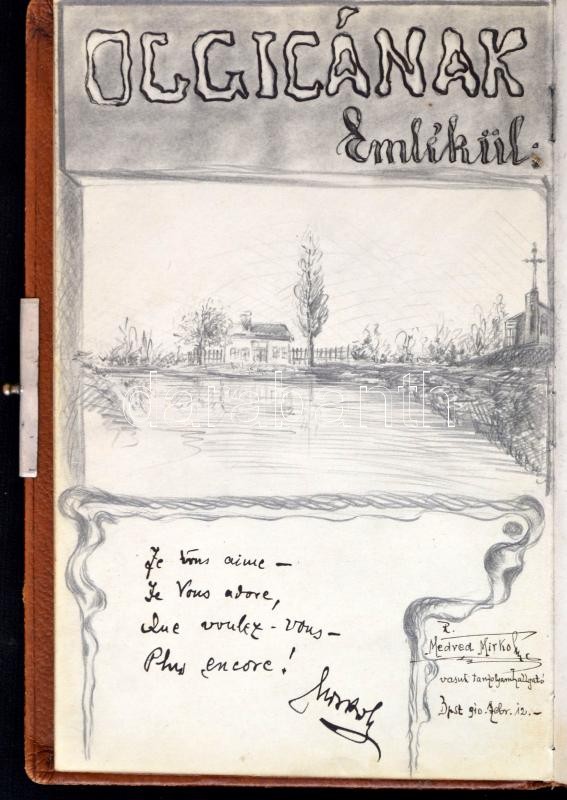 OLGICÁNAK
Emlékül:
darabanth
Je Vous aime —
Je Vous adore,
Que voulez-vous —
Plus encore!
Mirkoh
Medved Mirko
vasuti tanfolyamhallgató
Bpst 910. Febr. 12. —